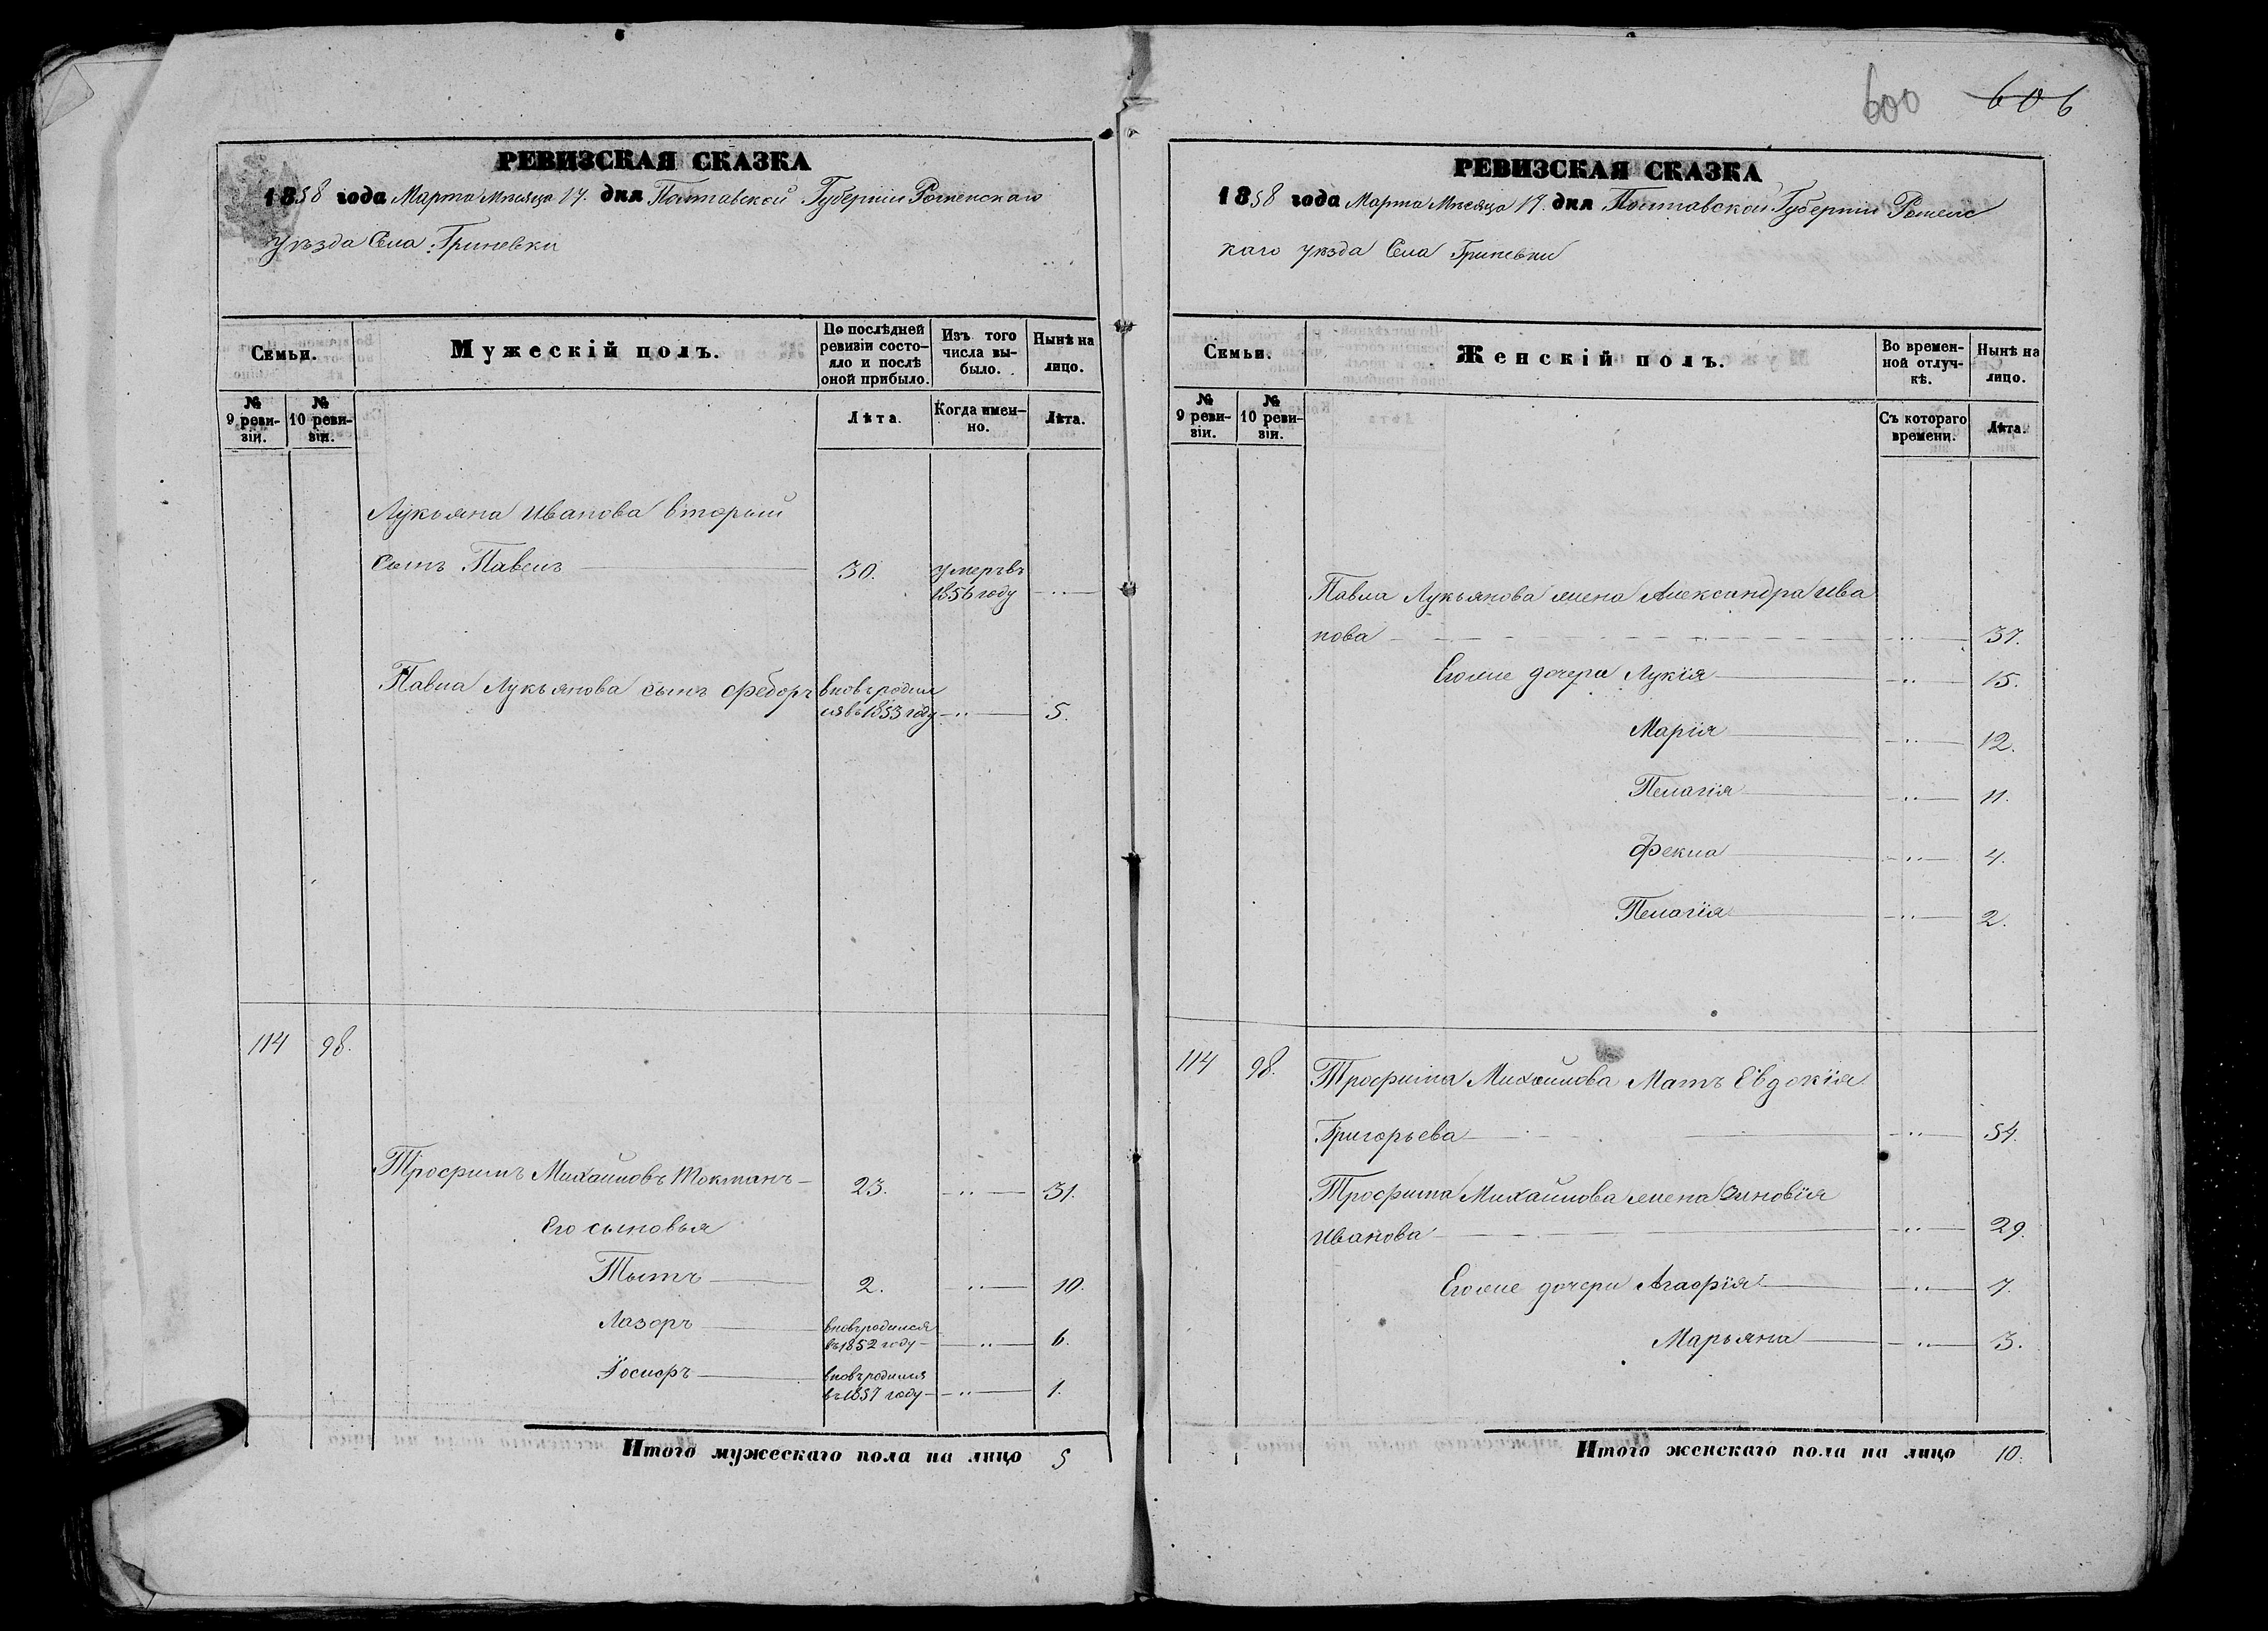 600 606
РЕВИЗСКАЯ СКАЗКА
1858 года Марта Месяца 17. дня Полтавской Губернии Роменскаго
уѣзда Села Гриневки
Семьи.
Мужескій полъ.
По послѣдней ревизіи состояло и послѣ оной прибыло.
Изъ того числа выбыло.
Нынѣ на лицо.
№ 9 ревизіи.
№ 10 ревизіи.
Лѣта.
Когда именно.
Лѣта.
Лукьяна Иванова вторый
сынъ Павелъ 30. умеръ въ 1856 году
Павла Лукьянова сынъ Федоръ вновь родился въ 1853 году 5.
114 98.
Трофимъ Михайловъ Токманъ 23. 31.
Его сыновья
Тытъ 2. 10.
Лазоръ вновь родился въ 1852 году 6.
Іосифъ вновь родился въ 1857 году 1.
Итого мужескаго пола на лицо 5
РЕВИЗСКАЯ СКАЗКА
1858 года Марта Месяца 17. дня Полтавской Губернии Роменс
каго уѣзда Села Гриневки
Семьи.
Женскій полъ.
Во временной отлучкѣ.
Нынѣ на лицо.
№ 9 ревизіи.
№ 10 ревизіи.
Съ котораго времени.
Лѣта.
Павла Лукьянова жена Александра Ива
нова 37.
Его же дочери Лукія 15.
Марія 12.
Пелагія 11.
Фекла 4.
Пелагія 2.
114 98. Трофима Михайлова Мать Евдокія
Григорьева 54.
Трофима Михайлова жена Зиновія
Иванова 29.
Его же дочери Агафія 7.
Марьяна 3.
Итого женскаго пола на лицо 10.